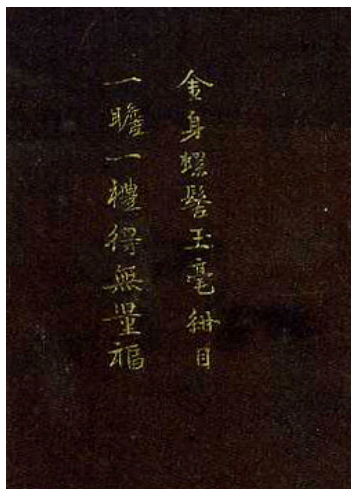 金身螺髻玉毫紺目
一瞻一禮得無量福